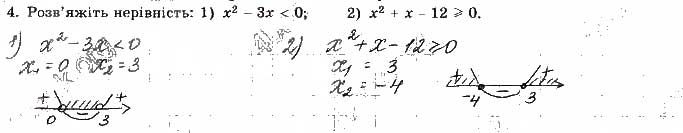 4. Розв'яжіть нерівність: 1) x² – 3x < 0; 2) x² + x – 12 ⩾ 0.
1) x² - 3x < 0
x₁ = 0 x₂ = 3
+ – +
0 3
2) x² + x - 12 ≥ 0
x₁ = 3
x₂ = -4
+ – +
-4 3